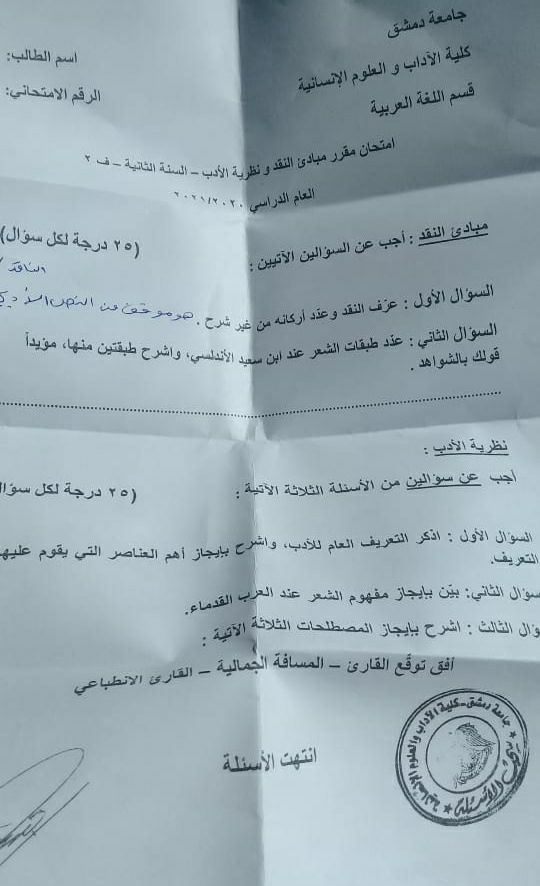 جامعة دمشق
كلية الآداب و العلوم الإنسانية
قسم اللغة العربية
اسم الطالب:
الرقم الامتحاني:
امتحان مقرر مبادئ النقد و نظرية الأدب – السنة الثانية – ف ٢
العام الدراسي ٢٠٢١/٢٠٢٠
مبادئ النقد : أجب عن السؤالين الآتيين : (٢٥ درجة لكل سؤال)
الناقد
السؤال الأول : عرّف النقد وعدّد أركانه من غير شرح . هو موقف من النص الأدبي
السؤال الثاني : عدّد طبقات الشعر عند ابن سعيد الأندلسي، واشرح طبقتين منها، مؤيداً
قولك بالشواهد .
نظرية الأدب :
أجب عن سؤالين من الأسئلة الثلاثة الآتية : (٢٥ درجة لكل سؤال
السؤال الأول : اذكر التعريف العام للأدب، واشرح بإيجاز أهم العناصر التي يقوم عليه
التعريف.
سؤال الثاني: بيّن بإيجاز مفهوم الشعر عند العرب القدماء.
ؤال الثالث : اشرح بإيجاز المصطلحات الثلاثة الآتية :
أفق توقّع القارئ – المسافة الجمالية – القارئ الانطباعي
انتهت الأسئلة
جامعة دمشق - كلية الآداب والعلوم الإنسانية